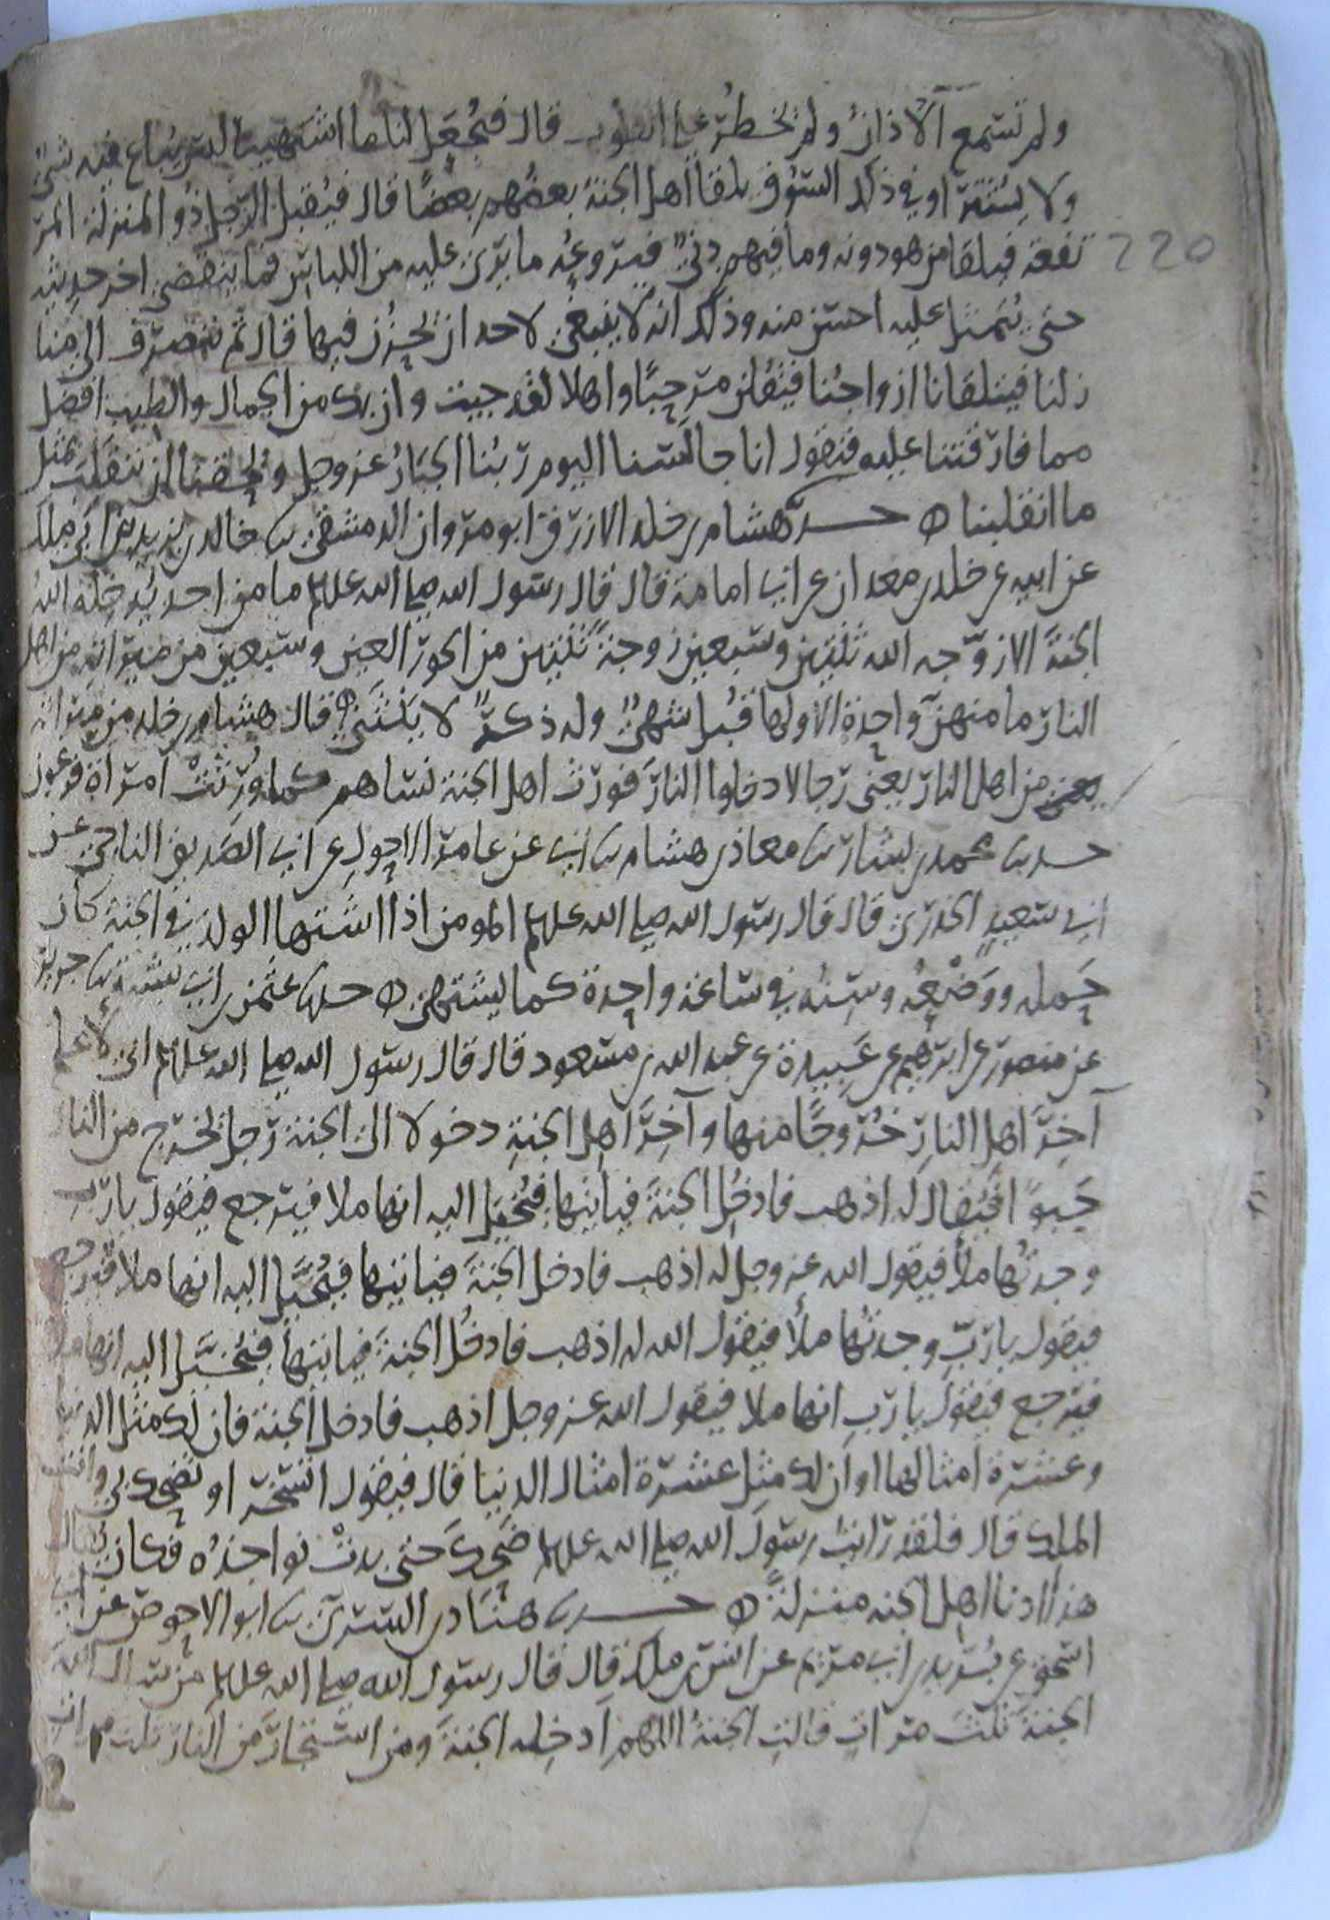 ولم تسمع الآذان ولم يخطر على القلوب قال فيجعل لنا ما اشتهينا ليس يباع فيه شيءٌ
ولا يشترا وفي ذلك السوق يلقا اهل الجنة بعضهم بعضًا قال فيقبل الرجل ذو المنزلة المر
تفعة فيلقا من هو دونه وما فيهم دنيٌّ فيروعُه ما يرى عليه من اللباس فما ينقضي اخر حديثه
حتى يتمثل عليه احسن منه وذلك انه لا ينبغي لاحد ان يحزن فيها قال ثم ننصرف الى منا
زلنا فيتلقانا ازواجُنا فيقلن مرحبًا واهلا لقد جيت وان بك من الجمال والطيب افضل
مما فارقتنا عليه فنقول انا جالسنا اليوم ربنا الجبارُ عز وجل ويحقنا ان ننقلب بمثل
ما انقلبنا ه حدثنا هشام بن خلد الازرق ابو مروان الدمشقي ثنا خالد بن يزيد بن ابي ملك
عن ابيه عن خلد بن معدان عن ابي امامة قال قال رسول الله صلى الله عليه وسلم ما من احد يُدخله اللهُ
الجنةَ الا زوّجه الله ثنتين وسبعين زوجةً ثنتين من الحور العين وسبعين من ميراثه من اهل
النار ما منهنّ واحدة الا ولها قُبل شهيٌّ وله ذكرٌ لا ينثني ه قال هشام بن خلد من ميراثه
يعني من اهل النار يعني رجالا دخلوا النار فورث اهل الجنة نساهم كما ورثت امراة فرعون
حدثنا محمد بن بشار ثنا معاذ بن هشام ثنا ابي عن عامر الاحول عن ابي الصديق الناجي عن
ابي سعيد الخدري قال قال رسول الله صلى الله عليه وسلم المومن اذا اشتها الولد في الجنة كان
حَمله ووَضْعُه وسِنُه في ساعة واحدة كما يشتهي ه حدثنا عثمن بن ابي شيبة ثنا جرير
عن منصور عن ابرهيم عن عَبيدة عن عبد الله بن مسعود قال قال رسول الله صلى الله عليه وسلم اني لأعلم
آخِرَ اهل النارِ خُروجًا منها وآخِرَ اهل الجنةِ دخولا الى الجنة رجل يخرج من النار
حَبوًا فيُقال له اذهب فادخُل الجنةَ فيأتيها فيُخيل اليه انها ملا فيرجع فيقول يا ربِّ
وجدتُها ملأ فيقول الله عز وجل له اذهب فادخل الجنةَ فياتيها فيُخَيَّل اليه انها ملا فيرجع
فيقول يا ربِّ وجدتُها ملأ فيقول الله له اذهب فادخُل الجنةَ فياتيها فيُخَيَّل اليه انها ملا
فيرجع فيقول يا ربِ انها ملا فيقول الله عز وجل اذهب فادخل الجنة فان لك مثل الدنيا
وعشرة امثالها او ان لك مثل عشرة امثال الدنيا قال فيقول اتسخر او تضحك بي وانت
الملك قال فلقد رايت رسولَ الله صلى الله عليه وسلم ضَحِكَ حتى بدتْ نواجذُه فكان يُقال
هذا ادنا اهل الجنه منزلةً ه حدثنا هنّاد بن السري ثنا ابو الاحوص عن ابي
اسحق عن بُريد بن ابي مريم عن انس بن ملك قال قال رسول الله صلى الله عليه وسلم من سال اللهَ
الجنةَ ثلثَ مراتٍ قالت الجنةُ اللهم ادخله الجنةَ ومن استجارَ من النار ثلث مرات
220